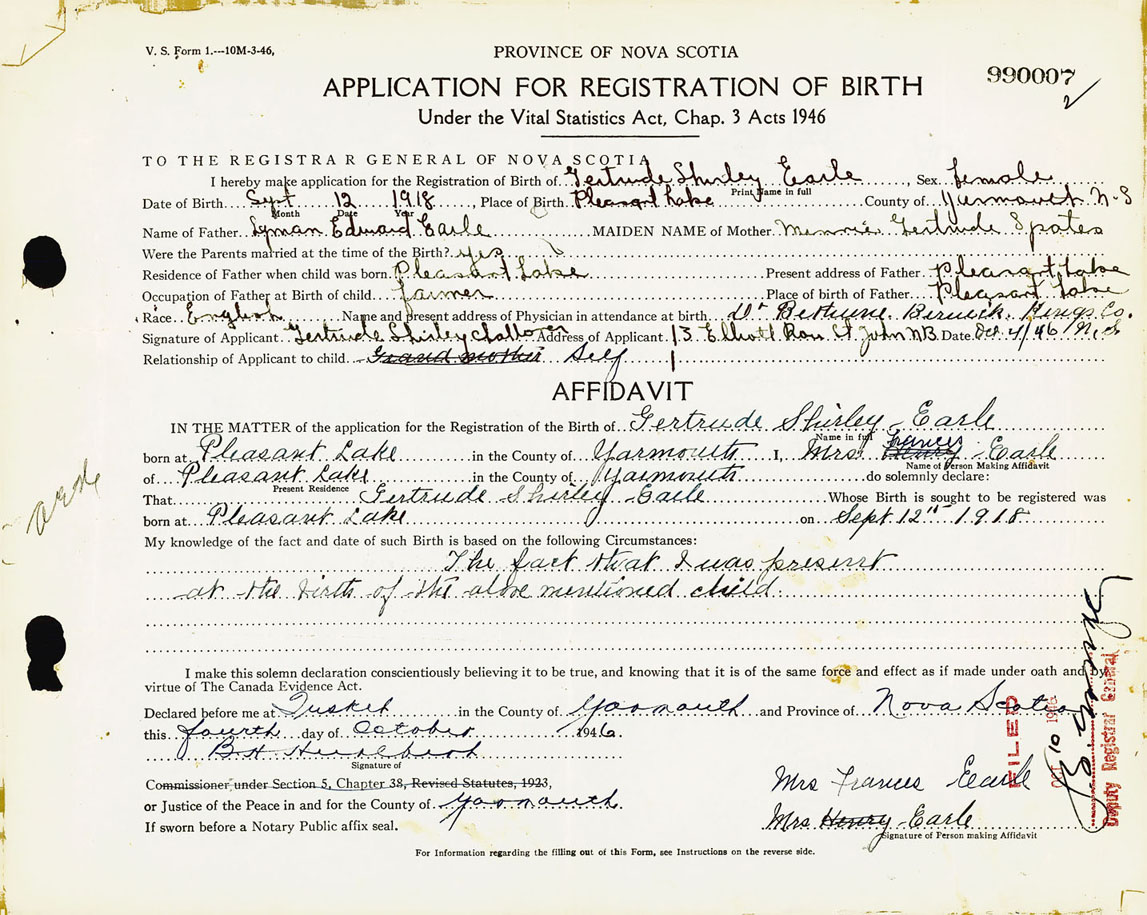 V. S. Form 1.---10M-3-46,
PROVINCE OF NOVA SCOTIA
990007
2
APPLICATION FOR REGISTRATION OF BIRTH
Under the Vital Statistics Act, Chap. 3 Acts 1946
TO THE REGISTRAR GENERAL OF NOVA SCOTIA
I hereby make application for the Registration of Birth of Gertrude Shirley Earle, Sex female
Print Name in full
Date of Birth Sept 12 1918, Place of Birth Pleasant Lake County of Yarmouth N-S
Month Date Year
Name of Father Lyman Edward Earle MAIDEN NAME of Mother Minnie Gertrude Spates
Were the Parents married at the time of the Birth? Yes
Residence of Father when child was born Pleasant Lake Present address of Father Pleasant Lake
Occupation of Father at Birth of child farmer Place of birth of Father Pleasant Lake
Race English Name and present address of Physician in attendance at birth Dr Bethune Berwick Kings Co.
Signature of Applicant Gertrude Shirley Address of Applicant 13 Elliott Row St John NB Date Oct 4/46 N.S
Relationship of Applicant to child Grand mother Self
AFFIDAVIT
IN THE MATTER of the application for the Registration of the Birth of Gertrude Shirley Earle
Name in full
born at Pleasant Lake in the County of Yarmouth I, Mrs. Frances Henry Earle
Name of Person Making Affidavit
of Pleasant Lake in the County of Yarmouth do solemnly declare:
Present Residence
That Gertrude Shirley Earle Whose Birth is sought to be registered was
born at Pleasant Lake on Sept 12th 1918
My knowledge of the fact and date of such Birth is based on the following Circumstances:
The fact that I was present
at the birth of the above mentioned child.
I make this solemn declaration conscientiously believing it to be true, and knowing that it is of the same force and effect as if made under oath and by
virtue of The Canada Evidence Act.
Declared before me at Tusket in the County of Yarmouth and Province of Nova Scotia
this fourth day of October 1946.
B.H. Hurlbert
Signature of
Commissioner under Section 5, Chapter 38, Revised Statutes, 1923,
or Justice of the Peace in and for the County of Yarmouth.
If sworn before a Notary Public affix seal.
Mrs Frances Earle
Mrs Henry Earle
Signature of Person making Affidavit
FILED
OCT 10 1946
Deputy Registrar General
For Information regarding the filling out of this Form, see Instructions on the reverse side.